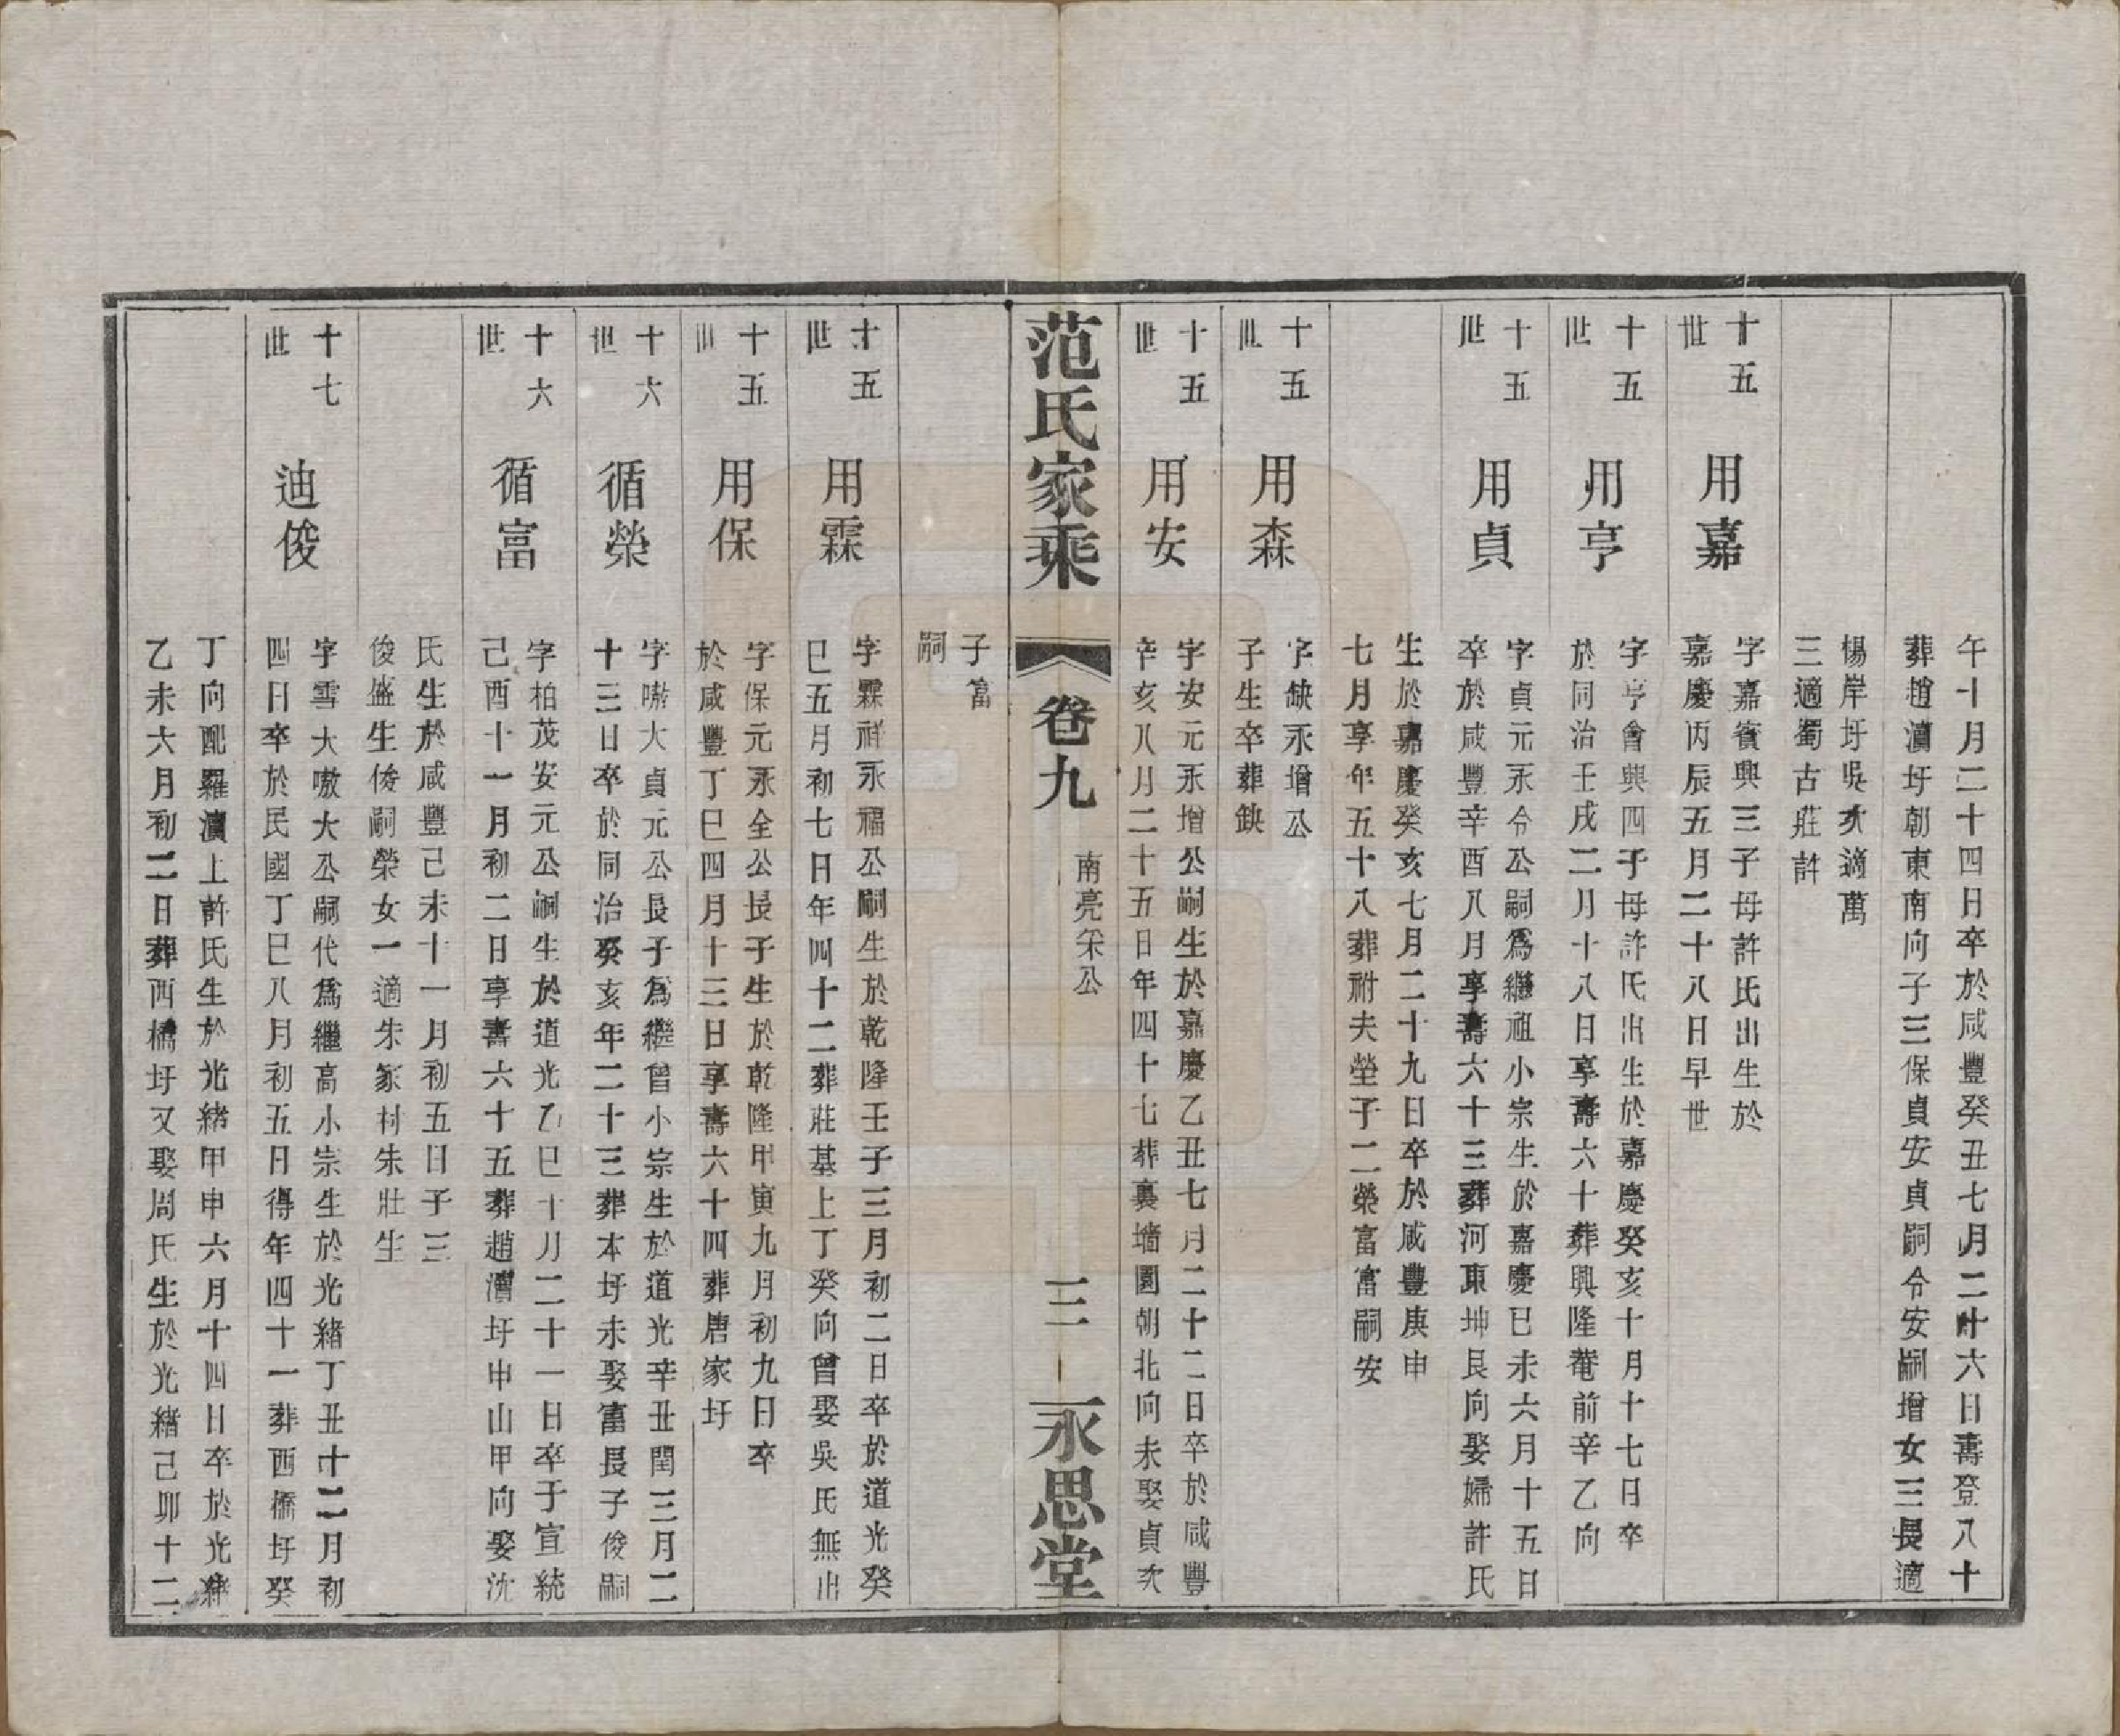 午十月二十四日卒於咸豐癸丑七月二十六日壽登八十
葬趙瀆圩朝東南向子三保貞安貞嗣令安嗣增女三長適
楊岸圩吳次適萬
三適蜀古莊許
十五世 用嘉 字嘉賓興三子母許氏出生於
嘉慶丙辰五月二十八日早世
十五世 用亨 字亨會興四子母許氏出生於嘉慶癸亥十月十七日卒
於同治壬戌二月十八日享壽六十葬興隆菴前辛乙向
十五世 用貞 字貞元永令公嗣爲繼祖小宗生於嘉慶己未六月十五日
卒於咸豐辛酉八月享壽六十三葬河東坤艮向娶婦許氏
生於嘉慶癸亥七月二十九日卒於咸豐庚申
七月享年五十八葬祔夫塋子二榮富富嗣安
十五世 用森 字缺永增公
子生卒葬缺
十五世 用安 字安元永增公嗣生於嘉慶乙丑七月二十二日卒於咸豐
辛亥八月二十五日年四十七葬裏墻園朝北向未娶貞次
范氏家乘 卷九 南亮 公 三 永思堂
子富
嗣
十五世 用霖 字霖祥永福公嗣生於乾隆壬子三月初二日卒於道光癸
巳五月初七日年四十二葬莊基上丁癸向曾娶吳氏無出
十五世 用保 字保元永全公長子生於乾隆甲寅九月初九日卒
於咸豐丁巳四月十三日享壽六十四葬唐家圩
十六世 循榮 字嗷大貞元公長子爲繼曾小宗生於道光辛丑閏三月二
十三日卒於同治癸亥年二十三葬本圩未娶富長子俊嗣
十六世 循富 字柏茂安元公嗣生於道光乙巳十月二十一日卒于宣統
己酉十一月初二日享壽六十五葬趙瀆圩申山甲向娶沈
氏生於咸豐己未十一月初五日子三
俊盛生俊嗣榮女一適朱家村朱壯生
十七世 迪俊 字雪大嗷大公嗣代爲繼高小宗生於光緒丁丑十二月初
四日卒於民國丁巳八月初五日得年四十一葬西橋圩癸
丁向配羅瀆上許氏生於光緒甲申六月十四日卒於光緒
乙未六月初二日葬西橋圩又娶周氏生於光緒己卯十二